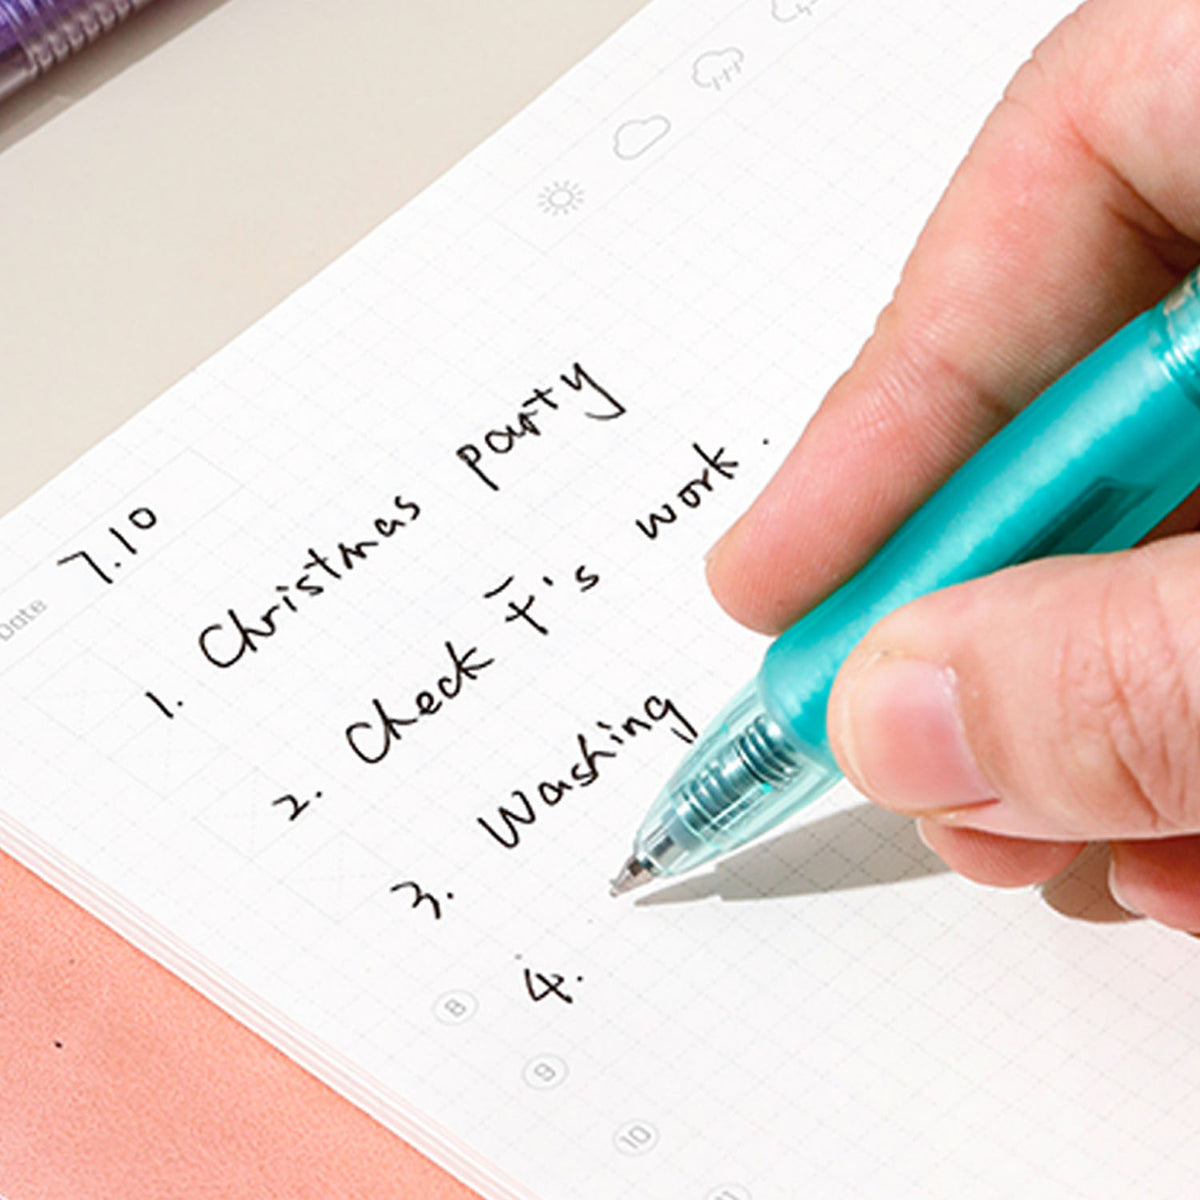 Date 7.10
1. Christmas party
2. Check F's work.
3. Washing
4.
8
9
10